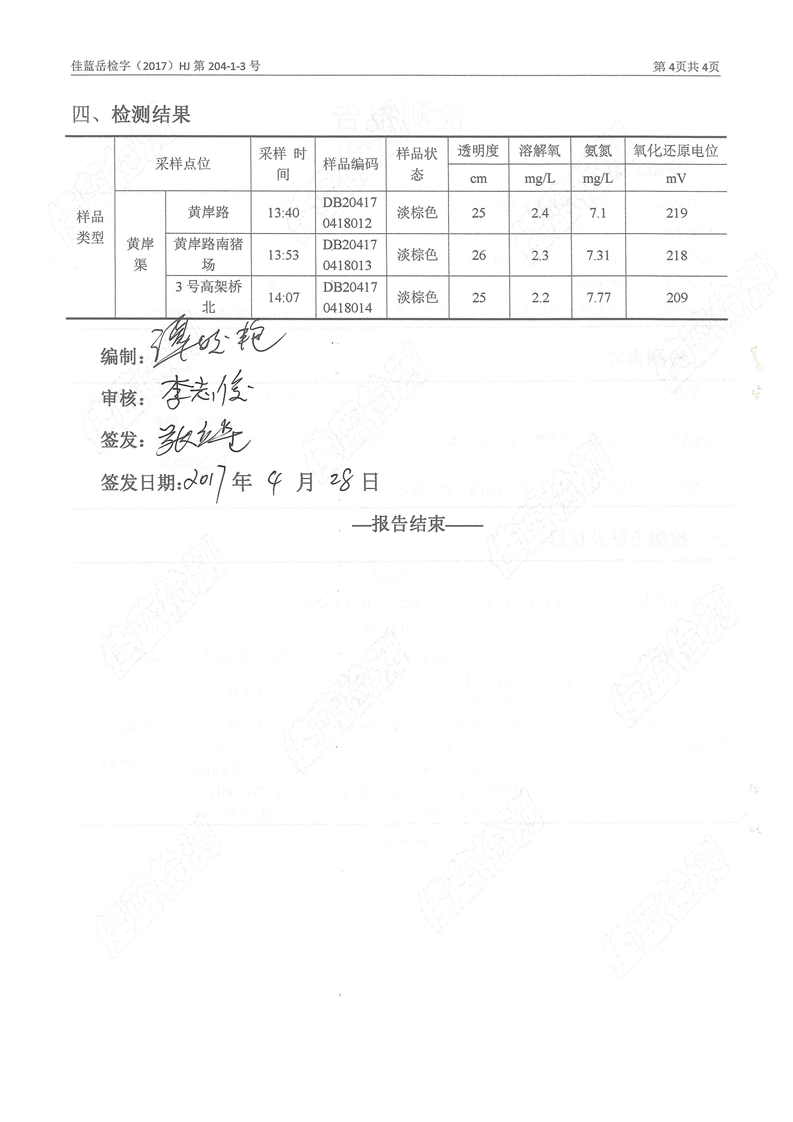 佳蓝岳检字（2017）HJ 第 204-1-3 号 第 4页共 4页
四、检测结果
样品类型 采样点位 采样 时间 样品编码 样品状态 透明度 溶解氧 氨氮 氧化还原电位
cm mg/L mg/L mV
黄岸渠 黄岸路 13:40 DB204170418012 淡棕色 25 2.4 7.1 219
黄岸路南猪场 13:53 DB204170418013 淡棕色 26 2.3 7.31 218
3 号高架桥北 14:07 DB204170418014 淡棕色 25 2.2 7.77 209
编制：
审核：李志俊
签发：
签发日期:2017 年 4 月 28 日
—报告结束——
佳蓝检测